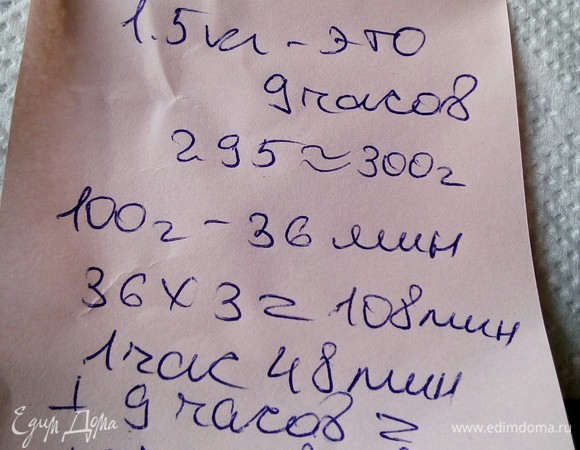 1.5кг - это
9 часов
295 ≈ 300г
100г - 36 мин
36 х 3 = 108мин
1час 48мин
+ 9 часов =
Едим Дома
www.edimdoma.ru